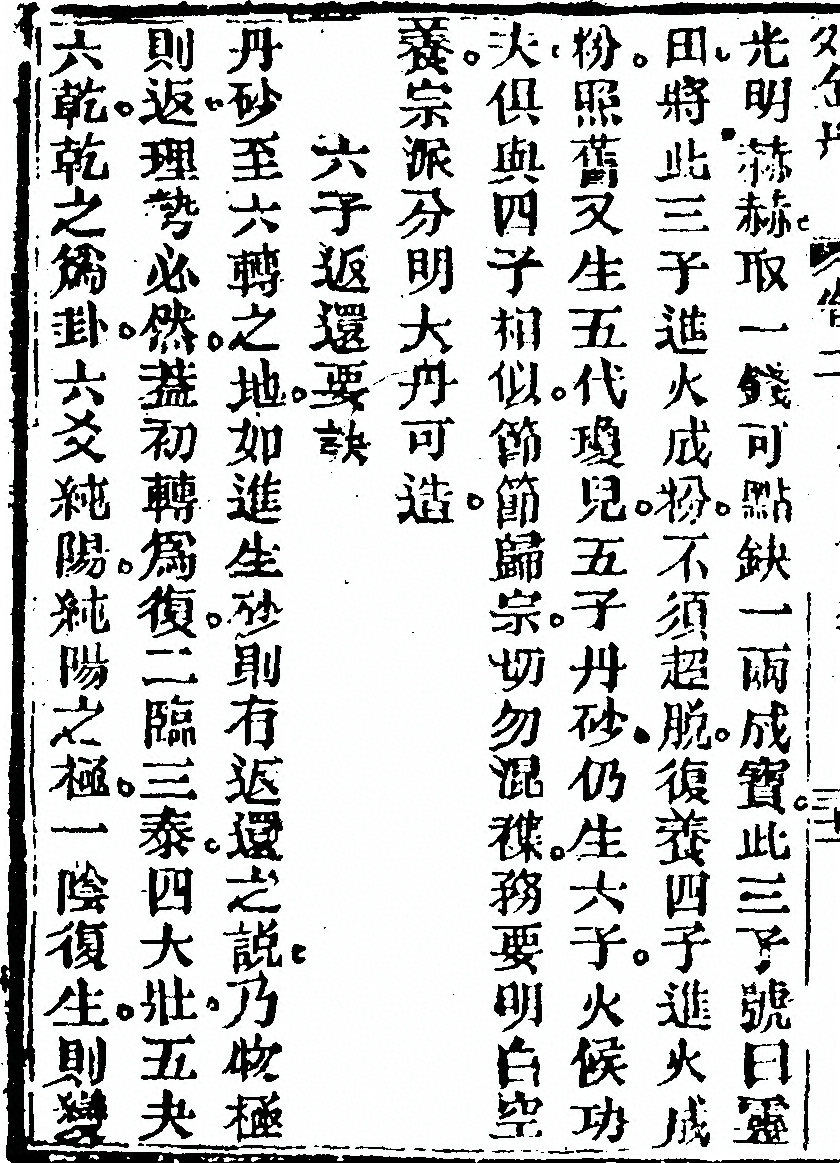 光明赫赫。取一錢可點缺一兩成寶。此三子號曰靈
田。將此三子進火成粉。不須超脫。復養四子進火成
粉。照舊又生五代瓊兒。五子丹砂。仍生六子。火候功
夫。俱與四子相似。節節歸宗。切勿混襍。務要明白空
養。宗派分明大丹可造。
六子返還要訣
丹砂至六轉之地。如進生砂則有返還之說。乃物極
則返。理勢必然。蓋初轉為復。二臨三泰。四大壯。五夬
六乾。乾之爲卦。六爻純陽。純陽之極。一陰復生。則變